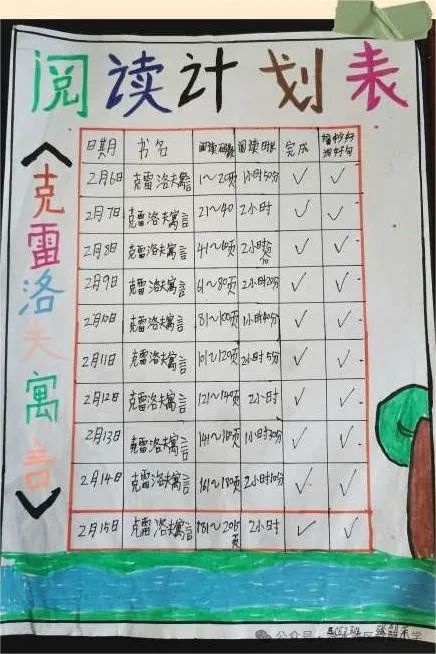 阅读计划表
《克雷洛夫寓言》
日期 书名 阅读页数 阅读时长 完成 摘抄好词好句
2月6日 克雷洛夫寓言 1~20页 1小时50分 ✓ ✓
2月7日 克雷洛夫寓言 21~40 2小时 ✓ ✓
2月8日 克雷洛夫寓言 41~60页 2小时 ✓ ✓
2月9日 克雷洛夫寓言 61~80页 2小时20分 ✓ ✓
2月10日 克雷洛夫寓言 81~100页 1小时40分 ✓ ✓
2月11日 克雷洛夫寓言 101~120页 2小时5分 ✓ ✓
2月12日 克雷洛夫寓言 121~140页 2小时 ✓ ✓
2月13日 克雷洛夫寓言 141~160页 1小时30分 ✓ ✓
2月14日 克雷洛夫寓言 161~180页 2小时10分 ✓ ✓
2月15日 克雷洛夫寓言 181~205页 2小时 ✓ ✓
公众号